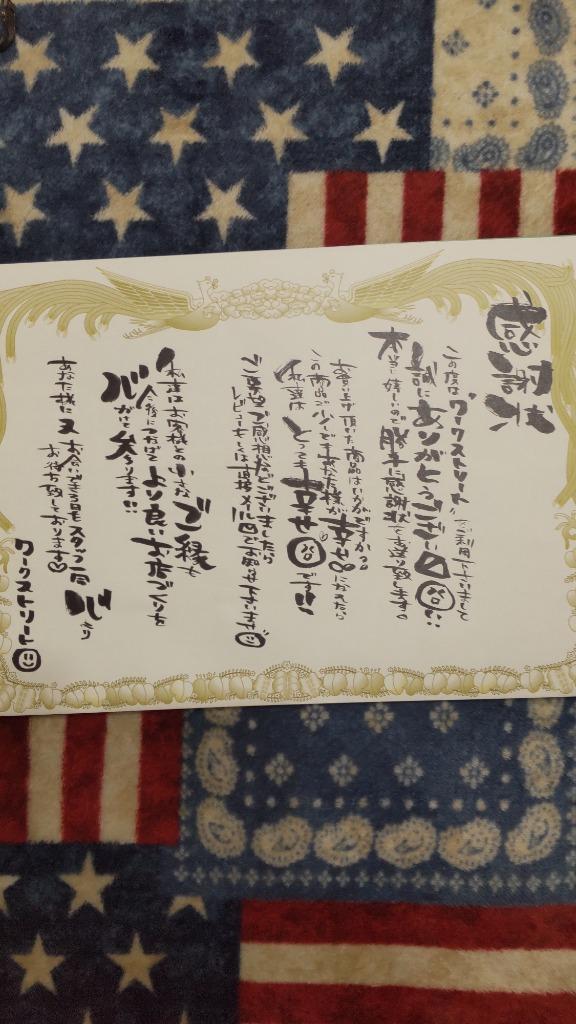 感謝状
この度はワークストリートをご利用下さいまして
誠にありがとうございます!!
本当に嬉しいので勝手に感謝状をお送り致します。
お買い上げ頂いた商品はいかがですか?
この商品で少しでもあなた様が幸せになれたら
私達はとっても幸せです!!
ご要望、ご感想などございましたら
レビューもしくは直接メール等でお聞かせ下さいませ
私達はお客様との小さなご縁を
今後につなげてより良いお店づくりを
心がけて参ります!!
あなた様に又お会いできる日をスタッフ一同心より
お待ち致しております♡
ワークストリート